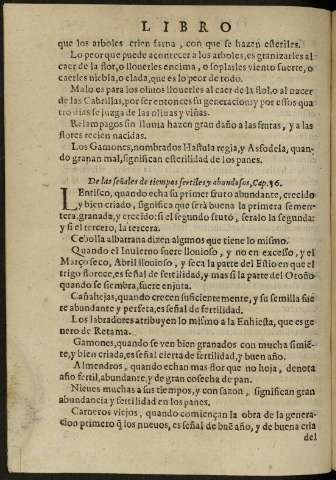 LIBRO
que los arboles crien sarna, con que se hazen esteriles.
Lo peor que puede acontecer a los arboles, es granizarles al
caer de la flor, o llouerles encima, o soplarles viento fuerte, o
caerles niebla, o elada, que es lo peor de todo.
Malo es para los oliuos llouerles al caer de la flor, o al nacer
de las Cabrillas, por ser entonces su generacion: y por essos quatro
dias se juzga de las oliuas y viñas.
Relampagos sin lluuia hazen gran daño a las frutas, y a las
flores recien nacidas.
Los Gamones, nombrados Hastula regia, y Asfodela, quando
granan mal, significan esterilidad de los panes.
De las señales de tiempos fertiles y abundosos, Cap. 36.
LEntisco, quando echa su primer fruto abundante, crecido
y bien criado, significa que serà buena la primera sementera,
granada, y crecido: si el segundo fruto, seralo la segunda:
y si el tercero, la tercera.
Cebolla albarrana dizen algunos que tiene lo mismo.
Quando el Inuierno fuere llouioso, y no en excesso, y el
Março seco, Abril llouioso, y seca la parte del Estio en que el
trigo florece, es señal de fertilidad, y mas si la parte del Otoño
quando se siembra, fuere enjuta.
Cañahejas, quando crecen suficientemente, y su semilla fuere
abundante y perfeta, es señal de fertilidad.
Los labradores atribuyen lo mismo a la Enhiesta, que es genero
de Retama.
Gamones, quando se ven bien granados con mucha simiẽte,
y bien criada, es señal cierta de fertilidad, y buen año.
Almendros, quando echan mas flor que no hoja, denota
año fertil, abundante, y de gran cosecha de pan.
Nieues muchas a sus tiempos, y con sazon, significan gran
abundancia y fertilidad en los panes.
Carneros viejos, quando comiençan la obra de la generacion
primero q̃ los nueuos, es señal de buẽ año, y de buena cria
del